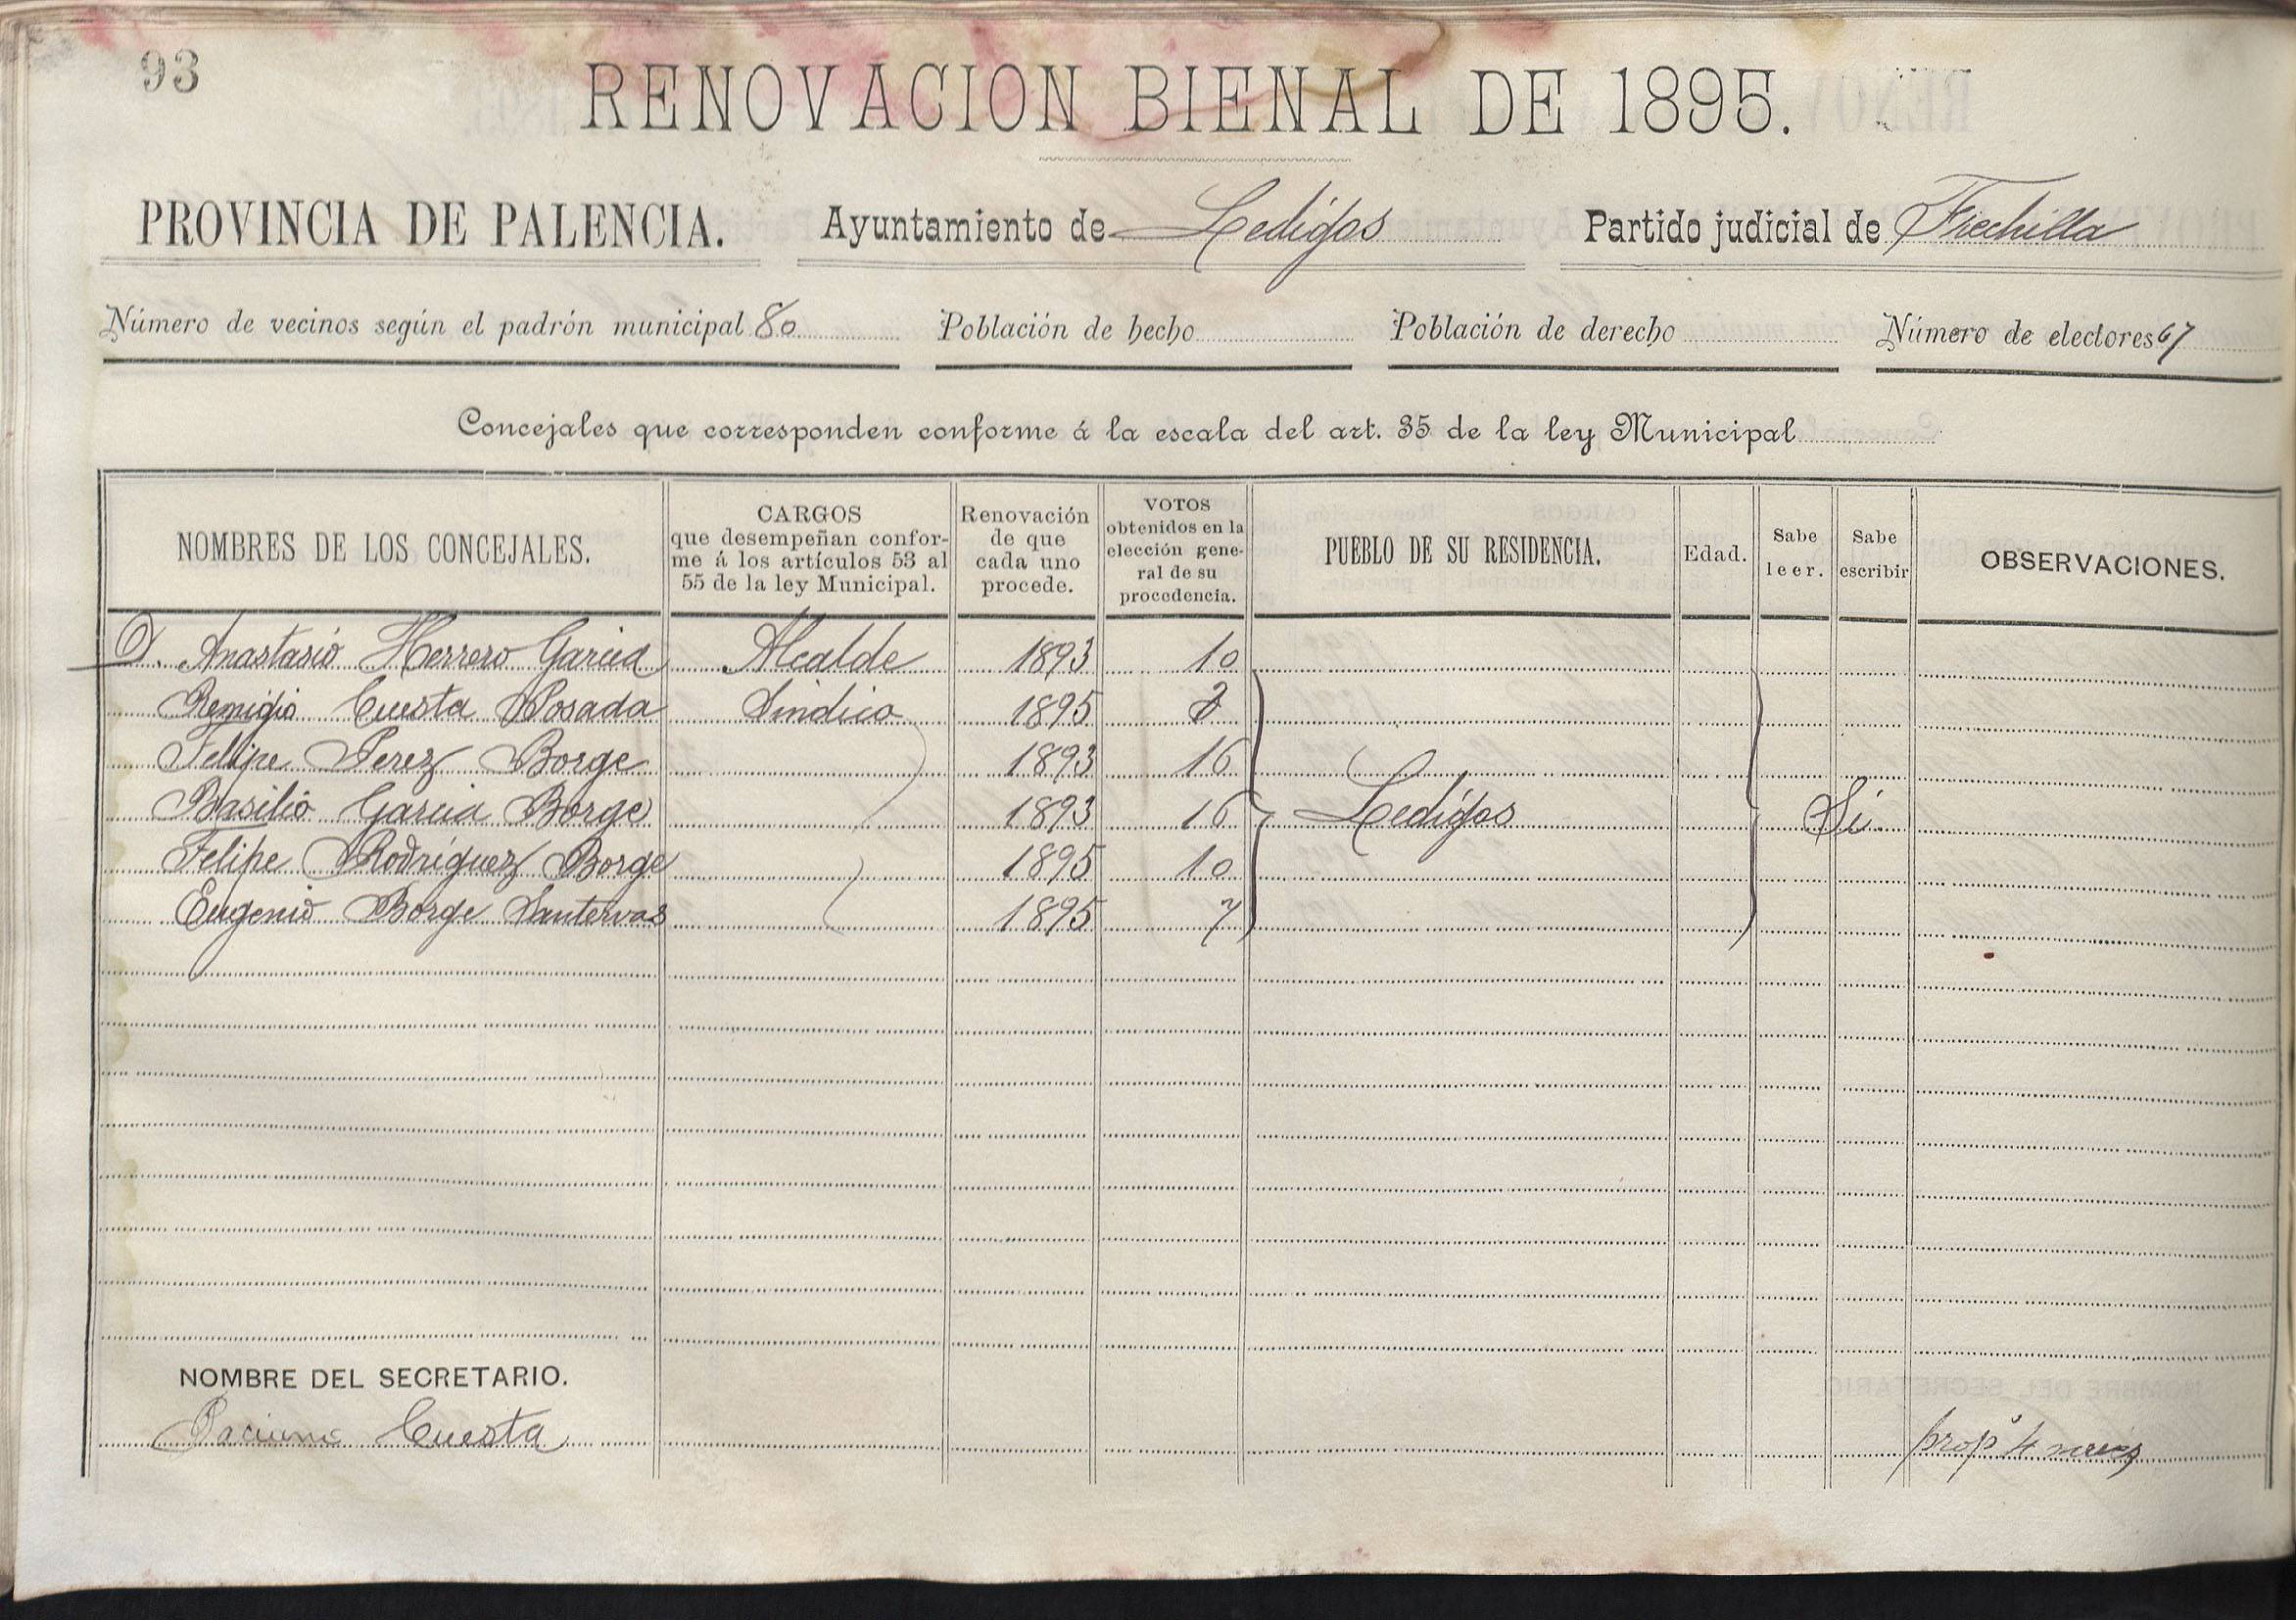 93
RENOVACION BIENAL DE 1895.
PROVINCIA DE PALENCIA. Ayuntamiento de Ledigos Partido judicial de Frechilla
Número de vecinos según el padrón municipal 80 Población de hecho Población de derecho Número de electores 67
Concejales que corresponden conforme á la escala del art. 35 de la ley Municipal
NOMBRES DE LOS CONCEJALES. CARGOS que desempeñan conforme á los artículos 53 al 55 de la ley Municipal. Renovación de que cada uno procede. VOTOS obtenidos en la elección general de su procedencia. PUEBLO DE SU RESIDENCIA. Edad. Sabe leer. Sabe escribir OBSERVACIONES.
D. Anastasio Herrero Garcia Alcalde 1893 10
Remigio Cuesta Posada Sindico 1895
Felipe Perez Borge 1893 16
Basilio Garcia Borge 1893 16 Ledigos Si
Felipe Rodriguez Borge 1895 10
Eugenio Borge Santervas 1895 7
NOMBRE DEL SECRETARIO.
Cuesta